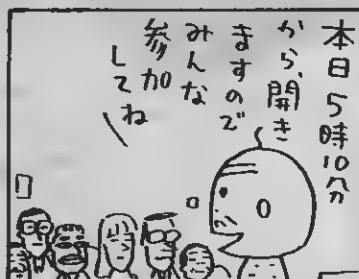 本日5時10分
から、開き
ますので
みんな
参加
してね